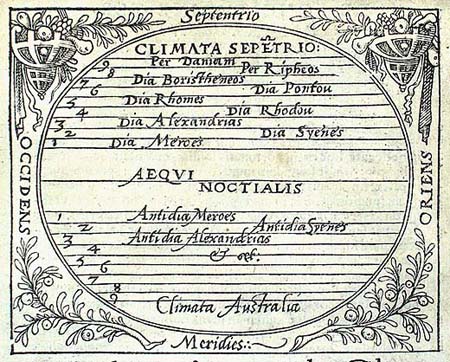 Septentrio
CLIMATA SEPẼTRIO:
9 Per Daniam
8 Per Ripheos
7 Dia Boristheneos
6 Dia Pontou
5 Dia Rhomes
4 Dia Rhodou
3 Dia Alexandrias
2 Dia Syenes
1 Dia Meroes
OCCIDENS
ORIENS
AEQVI
NOCTIALIS
1 Antidia Meroes
2 Antidia Syenes
3 Antidia Alexandrias
4 & cet:
5
6
7
8
9
Climata Australia
Meridies: